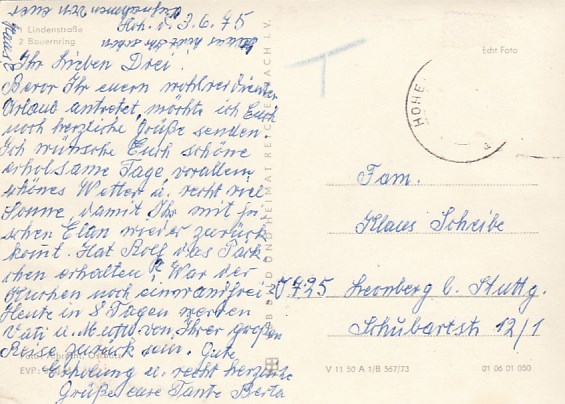 Hoh. d. 3.6.75
1 Lindenstraße
2 Bauernring
Ihr lieben Drei!
Bevor Ihr euern wohlverdienten
Urlaub antretet, möchte ich Euch
noch herzliche Grüße senden.
Ich wünsche Euch schöne
erholsame Tage, vorallem
schönes Wetter u. recht viel
Sonne, damit Ihr mit fri-
schen Elan wieder zurück
komt. Hat Rolf das Päck
chen erhalten? War der
Kuchen noch einwandfrei?
Heute in 8 Tagen werden
Vati u. Mutti von Ihrer großen
Reise zurück sein. Gute
Erholung u. recht herzliche
Grüße eure Tante Berta
EVP:
BILD UND HEIMAT REICHENBACH I. V.
Echt Foto
T
HOHE
Fam.
Klaus Scheibe
7725 Leonberg b. Stuttg.
Schubartstr 12/1
V 11 50 A 1/B 567/73
01 06 01 050